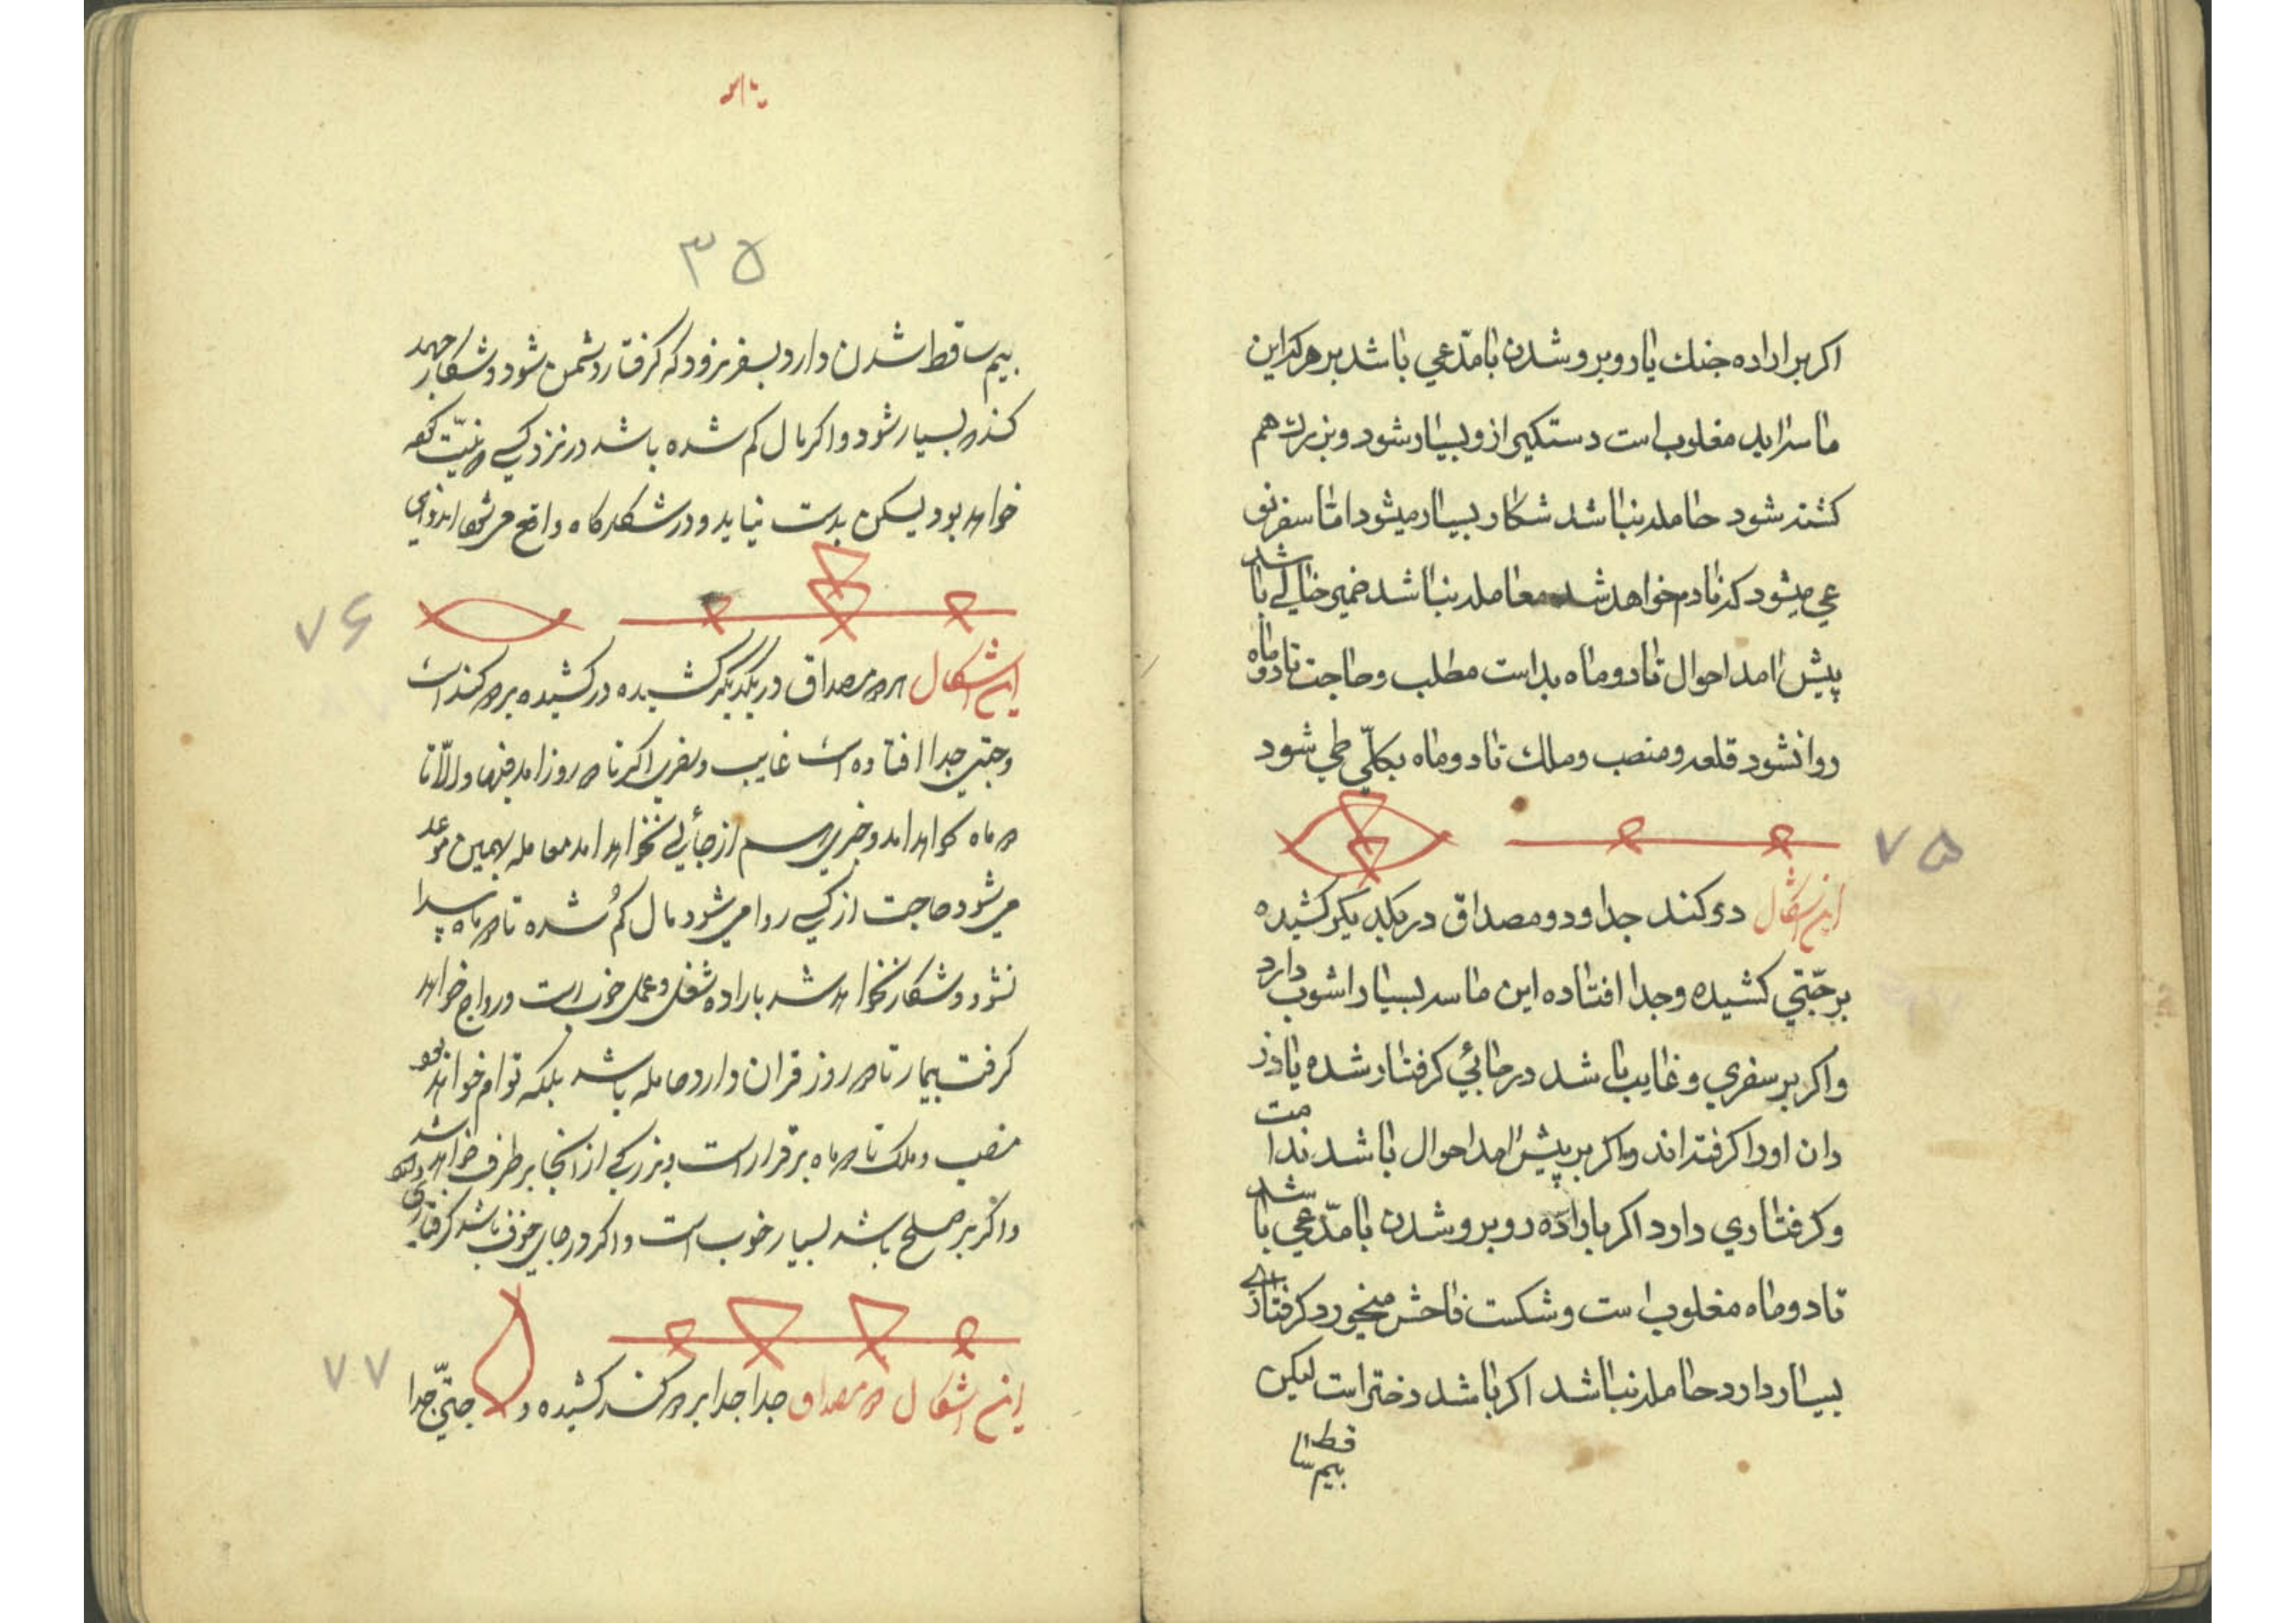 اکر بر اراده جنك یا روبرو شدن با مدّعی باشد بر هرکه این
ماسه اید مغلوب است دستکیر ازو بسیار شود و بزرك هم
کشته شود حامله نباشد شکار بسیار میشود اما سفر نو
عی میشود که نادم خواهد شد معامله نباشد ضمیر خالی باشد
پیش امد احوال تا دو ماه بد است مطلب و حاجت تا دو ماه
روا نشود قلعه و منصب و ملك تا دو ماه بکلّی طی شود
۷۵
این اشکال دو کند جدا و دو مصداق در یکدیکر کشیده
بر جّتی کشیده و جدا افتاده این ماسه بسیار اشوب دارد
و اکر بر سفری و غایب باشد در جائی کرفتار شده یا دز
دان او را کرفته اند و اکر بر پیش امد احوال باشد ندامت
و کرفتاری دارد اکر باراده روبرو شدن با مدّعی باشد
تا دو ماه مغلوب است و شکست فاحش میخورد کرفتاری
بسیار دارد حامله نباشد اکر باشد دختر است لیکن
بیم ساقط
۳۵
بیم ساقط شدن دارد بسفر نرود که کرفتار دشمن شود و شکار
کند بسیار شود و اکر مال کم شده باشد در نزد کسی
خواهد بود لیکن بدست نیاید و در شکارکاه واقع
۷۶
این اشکال مصداق در یکدیکر کشیده در کشیده بر دو کند است
و جتی جدا افتاده است غایب و سفری اکر تا دو روز امد فبها و الّا تا
دو ماه نخواهد امد و خبری هم از جائی نخواهد امد معامله بهمین موعد
میشود حاجت از کسی روا میشود مال کم شده تا دو ماه پیدا
نشود و شکار نخواهد شد باراده شغل و عمل خوب است و رواج خواهد
کرفت بیمار تا دو روز قران دارد حامله باشد بلکه توام خواهد بود
منصب و ملک تا دو ماه برقرار است و بزرکی از انجا بر طرف خواهد شد
و اکر بر صلح باشد بسیار خوب است و اکر در جای خوف باشد کرفتاری
۷۷
این اشکال دو مصداق جدا جدا بر دو کند کشیده و جتّی جدا